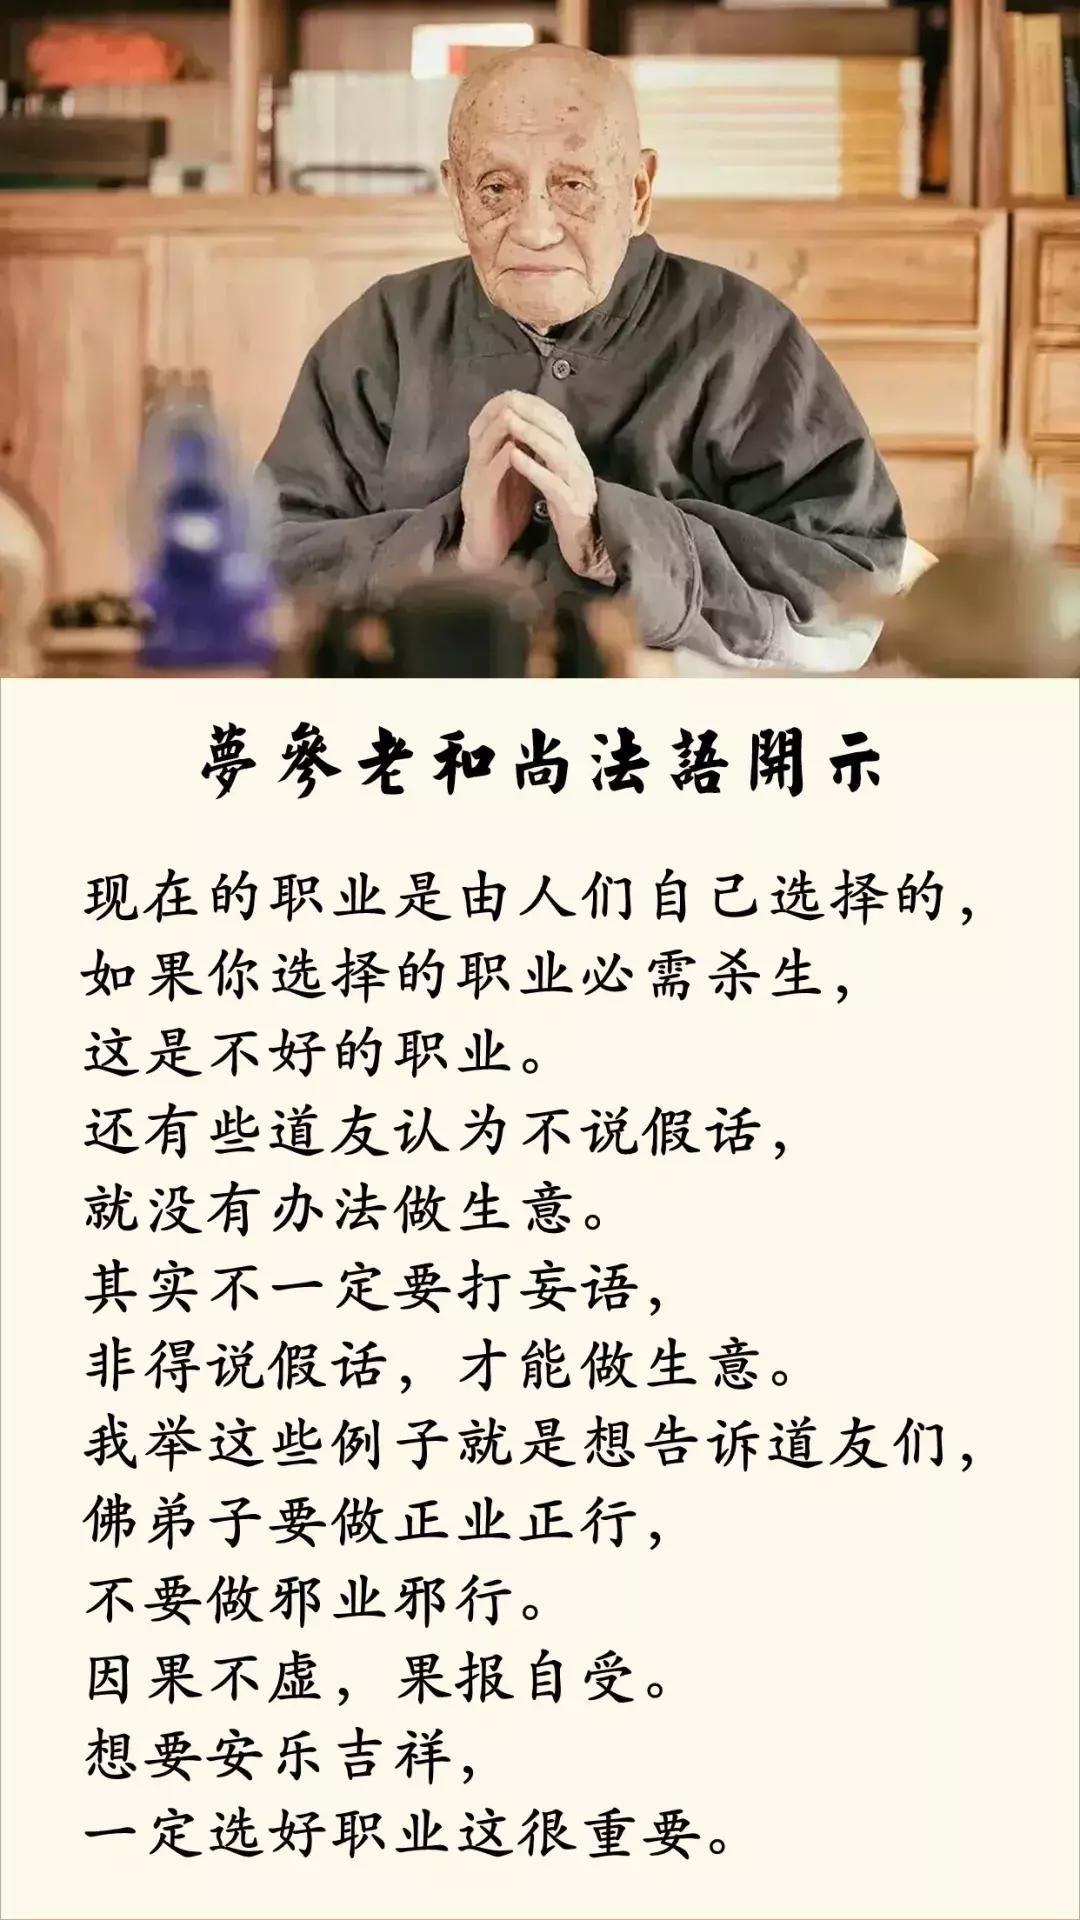 夢參老和尚法語開示
现在的职业是由人们自己选择的，
如果你选择的职业必需杀生，
这是不好的职业。
还有些道友认为不说假话，
就没有办法做生意。
其实不一定要打妄语，
非得说假话，才能做生意。
我举这些例子就是想告诉道友们，
佛弟子要做正业正行，
不要做邪业邪行。
因果不虚，果报自受。
想要安乐吉祥，
一定选好职业这很重要。